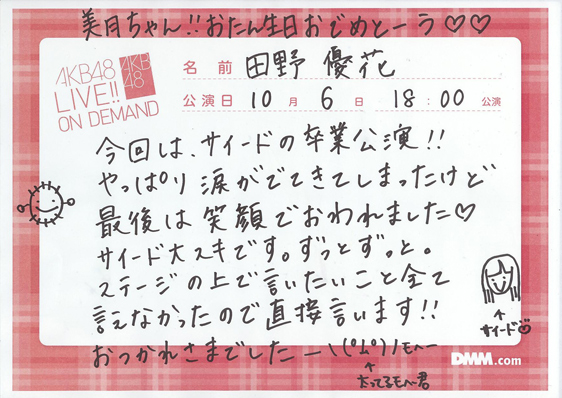 美月ちゃん!!おたん生日おでめとーう♡♡
AKB48
LIVE!!
ON DEMAND
AKB
48
名前 田野 優花
公演日 10月 6日 18:00 公演
今回は、サイードの卒業公演!!
やっぱり涙がでてきてしまったけど
最後は笑顔でおわれました♡
サイード大スキです。ずっとずっと。
ステージの上で言いたいこと全て
言えなかったので直接言います!!
↑
サイード
おつかれさまでしたー
DMM.com
↑